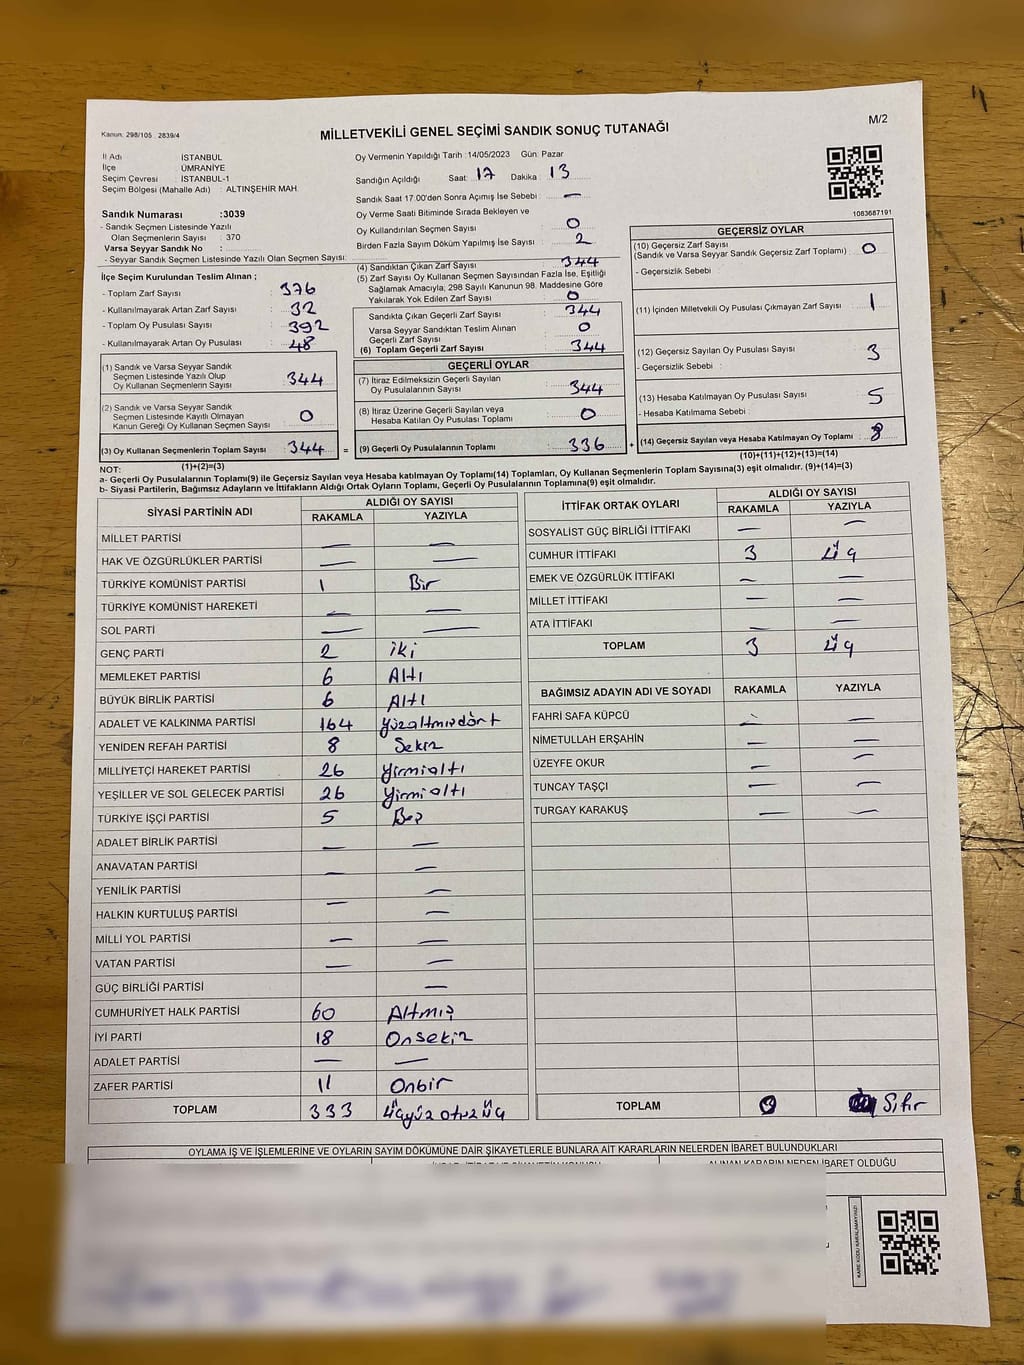 Kanun: 298/105 2839/4
MİLLETVEKİLİ GENEL SEÇİMİ SANDIK SONUÇ TUTANAĞI
M/2
İl Adı : İSTANBUL
İlçe : ÜMRANİYE
Seçim Çevresi : İSTANBUL-1
Seçim Bölgesi (Mahalle Adı) : ALTINŞEHİR MAH.
Sandık Numarası :3039
- Sandık Seçmen Listesinde Yazılı
Olan Seçmenlerin Sayısı : 370
Varsa Seyyar Sandık No :
- Seyyar Sandık Seçmen Listesinde Yazılı Olan Seçmen Sayısı:
Oy Vermenin Yapıldığı Tarih :14/05/2023 Gün: Pazar
Sandığın Açıldığı Saat: 17 Dakika : 13
Sandık Saat 17.00'den Sonra Açımış İse Sebebi : —
Oy Verme Saati Bitiminde Sırada Bekleyen ve
Oy Kullandırılan Seçmen Sayısı : 0
Birden Fazla Sayım Döküm Yapılmış İse Sayısı : 2
1083687191
İlçe Seçim Kurulundan Teslim Alınan ;
- Toplam Zarf Sayısı : 376
- Kullanılmayarak Artan Zarf Sayısı : 32
- Toplam Oy Pusulası Sayısı : 392
- Kullanılmayarak Artan Oy Pusulası : 48
(1) Sandık ve Varsa Seyyar Sandık
Seçmen Listesinde Yazılı Olup
Oy Kullanan Seçmenlerin Sayısı : 344
(2) Sandık ve Varsa Seyyar Sandık
Seçmen Listesinde Kayıtlı Olmayan
Kanun Gereği Oy Kullanan Seçmen Sayısı : 0
(3) Oy Kullanan Seçmenlerin Toplam Sayısı : 344
(1)+(2)=(3)
=
(4) Sandıktan Çıkan Zarf Sayısı : 344
(5) Zarf Sayısı Oy Kullanan Seçmen Sayısından Fazla İse, Eşitliği
Sağlamak Amacıyla; 298 Sayılı Kanunun 98. Maddesine Göre
Yakılarak Yok Edilen Zarf Sayısı : 0
Sandıkta Çıkan Geçerli Zarf Sayısı : 344
Varsa Seyyar Sandıktan Teslim Alınan
Geçerli Zarf Sayısı : 0
(6) Toplam Geçerli Zarf Sayısı : 344
GEÇERLİ OYLAR
(7) İtiraz Edilmeksizin Geçerli Sayılan
Oy Pusulalarının Sayısı : 344
(8) İtiraz Üzerine Geçerli Sayılan veya
Hesaba Katılan Oy Pusulası Toplamı : 0
(9) Geçerli Oy Pusulalarının Toplamı : 336
+
GEÇERSİZ OYLAR
(10) Geçersiz Zarf Sayısı
(Sandık ve Varsa Seyyar Sandık Geçersiz Zarf Toplamı) : 0
- Geçersizlik Sebebi :
(11) İçinden Milletvekili Oy Pusulası Çıkmayan Zarf Sayısı : 1
(12) Geçersiz Sayılan Oy Pusulası Sayısı : 3
- Geçersizlik Sebebi :
(13) Hesaba Katılmayan Oy Pusulası Sayısı : 5
- Hesaba Katılmama Sebebi :
(14) Geçersiz Sayılan veya Hesaba Katılmayan Oy Toplamı : 8
(10)+(11)+(12)+(13)=(14)
NOT:
a- Geçerli Oy Pusulalarının Toplamı(9) ile Geçersiz Sayılan veya Hesaba katılmayan Oy Toplamı(14) Toplamları, Oy Kullanan Seçmenlerin Toplam Sayısına(3) eşit olmalıdır. (9)+(14)=(3)
b- Siyasi Partilerin, Bağımsız Adayların ve İttifakların Aldığı Ortak Oyların Toplamı, Geçerli Oy Pusulalarının Toplamına(9) eşit olmalıdır.
SİYASİ PARTİNİN ADI ALDIĞI OY SAYISI
RAKAMLA YAZIYLA
MİLLET PARTİSİ — —
HAK VE ÖZGÜRLÜKLER PARTİSİ — —
TÜRKİYE KOMÜNİST PARTİSİ 1 Bir
TÜRKİYE KOMÜNİST HAREKETİ — —
SOL PARTİ — —
GENÇ PARTİ 2 iki
MEMLEKET PARTİSİ 6 Altı
BÜYÜK BİRLİK PARTİSİ 6 Altı
ADALET VE KALKINMA PARTİSİ 164 yüzaltmışdört
YENİDEN REFAH PARTİSİ 8 Sekiz
MİLLİYETÇİ HAREKET PARTİSİ 26 yirmialtı
YEŞİLLER VE SOL GELECEK PARTİSİ 26 yirmialtı
TÜRKİYE İŞÇİ PARTİSİ 5 Beş
ADALET BİRLİK PARTİSİ — —
ANAVATAN PARTİSİ — —
YENİLİK PARTİSİ — —
HALKIN KURTULUŞ PARTİSİ —
MİLLİ YOL PARTİSİ — —
VATAN PARTİSİ — —
GÜÇ BİRLİĞİ PARTİSİ —
CUMHURİYET HALK PARTİSİ 60 Altmış
İYİ PARTİ 18 Onsekiz
ADALET PARTİSİ — —
ZAFER PARTİSİ 11 Onbir
TOPLAM 333 üçyüz otuz üç
İTTİFAK ORTAK OYLARI ALDIĞI OY SAYISI
RAKAMLA YAZIYLA
SOSYALİST GÜÇ BİRLİĞİ İTTİFAKI — —
CUMHUR İTTİFAKI 3 üç
EMEK VE ÖZGÜRLÜK İTTİFAKI — —
MİLLET İTTİFAKI — —
ATA İTTİFAKI — —
TOPLAM 3 üç
BAĞIMSIZ ADAYIN ADI VE SOYADI RAKAMLA YAZIYLA
FAHRİ SAFA KÜPCÜ — —
NİMETULLAH ERŞAHİN — —
ÜZEYFE OKUR — —
TUNCAY TAŞÇI — —
TURGAY KARAKUŞ — —
TOPLAM Sıfır
OYLAMA İŞ VE İŞLEMLERİNE VE OYLARIN SAYIM DÖKÜMÜNE DAİR ŞİKAYETLERLE BUNLARA AİT KARARLARIN NELERDEN İBARET BULUNDUKLARI
ALINAN KARARIN NEDEN İBARET OLDUĞU
KARE KODU KARALAMAYINIZ!